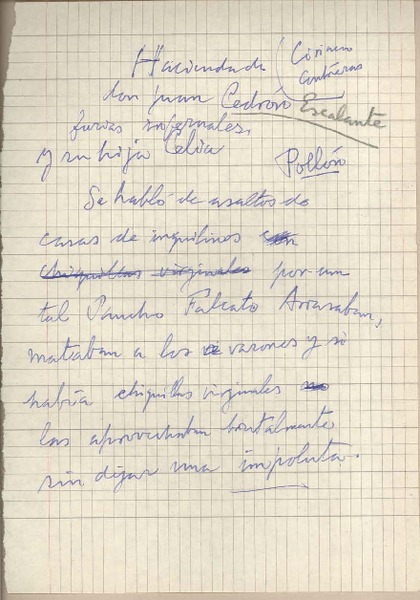 Hacienda de
don Juan Pedroso Escalante
furias infernales,
y su hija Celia
Se habló de asaltos de
casas de inquilinos
chiquillas virginales por un
tal Pancho Falcato Arrasaban,
mataban a los varones y si
había chiquillas virginales
las aprovechaban brutalmente
sin dejar una impoluta.